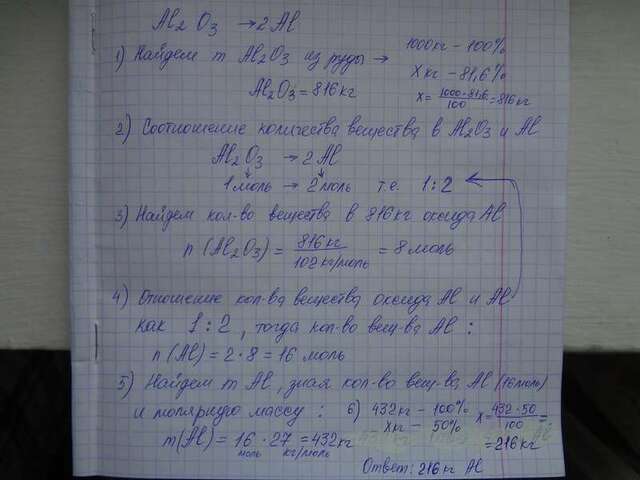 Al₂O₃ → 2Al
1) Найдем m Al₂O₃ из руды → 1000кг – 100%
Xкг – 81,6%
Al₂O₃ = 816кг x = 1000·81,6/100 = 816кг
2) Соотношение количества вещества в Al₂O₃ и Al
Al₂O₃ → 2Al
1моль → 2моль т.е. 1:2
3) Найдем кол-во вещества в 816кг оксида Al
n(Al₂O₃) = 816кг/102кг/моль = 8 моль
4) Отношение кол-ва вещества оксида Al и Al
как 1:2, тогда кол-во вещ-ва Al:
n(Al) = 2·8 = 16 моль
5) Найдем m Al, зная кол-во вещ-ва Al (16моль)
и молярную массу: 6) 432кг – 100% x = 432·50/100 =
xкг – 50%
m(Al) = 16 моль · 27 кг/моль = 432кг = 216кг
Ответ: 216кг Al